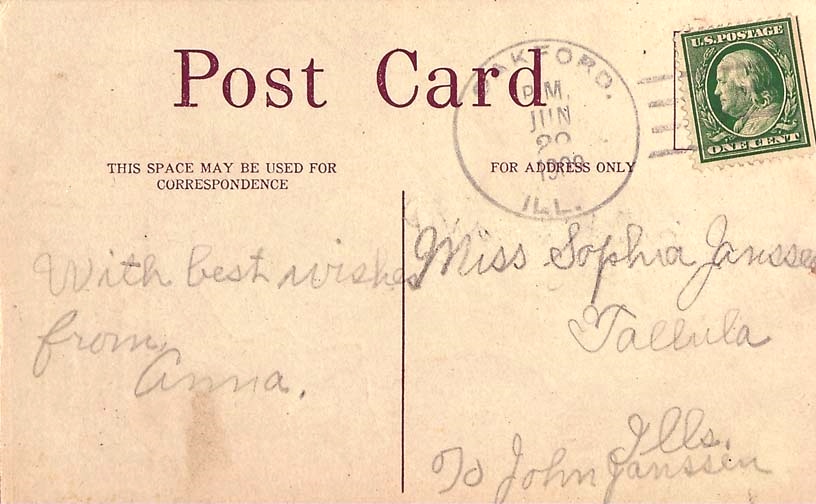 Post Card
THIS SPACE MAY BE USED FOR
CORRESPONDENCE
FOR ADDRESS ONLY
OAKFORD.
P.M.
JUN
1909
ILL.
U.S. POSTAGE
ONE CENT
With best wishes
from,
Anna.
Miss Sophia Janssen
Tallula
Ills.
To John Janssen